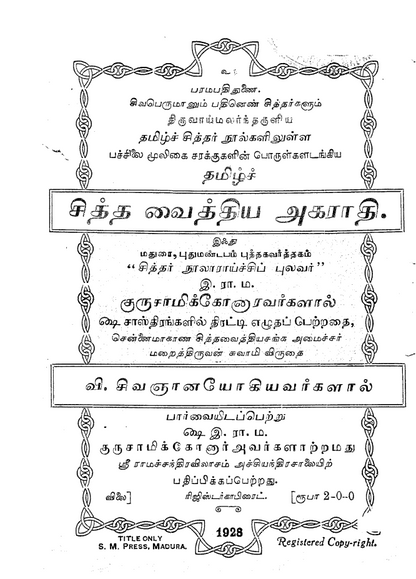 உ
பரமபதிதுணை.
சிவபெருமானும் பதினெண் சித்தர்களும்
திருவாய்மலர்ந்தருளிய
தமிழ்ச் சித்தர் நூல்களிலுள்ள
பச்சிலை மூலிகை சரக்குகளின் பொருள்களடங்கிய
தமிழ்ச்
சித்த வைத்திய அகராதி.
இஃது
மதுரை, புதுமண்டபம் புத்தகவர்த்தகம்
“சித்தர் நூலாராய்ச்சிப் புலவர்”
இ. ரா. ம.
குருசாமிக்கோனாரவர்களால்
ஷை சாஸ்திரங்களில் திரட்டி எழுதப் பெற்றதை,
சென்னைமாகாண சித்தவைத்தியசங்க அமைச்சர்
மறைத்திருவன் சுவாமி விருதை
வி. சிவஞானயோகியவர்களால்
பார்வையிடப்பெற்று
ஷை இ. ரா. ம.
குருசாமிக்கோனார்அவர்களாற்றமது
ஸ்ரீ ராமச்சந்திரவிலாசம் அச்சியந்திரசாலையிற்
பதிப்பிக்கப்பெற்றது.
விலை] ரிஜிஸ்டர்காபிரைட். [ரூபா 2-0-0
1928
TITLE ONLY
S. M. PRESS, MADURA.
Registered Copy-right.